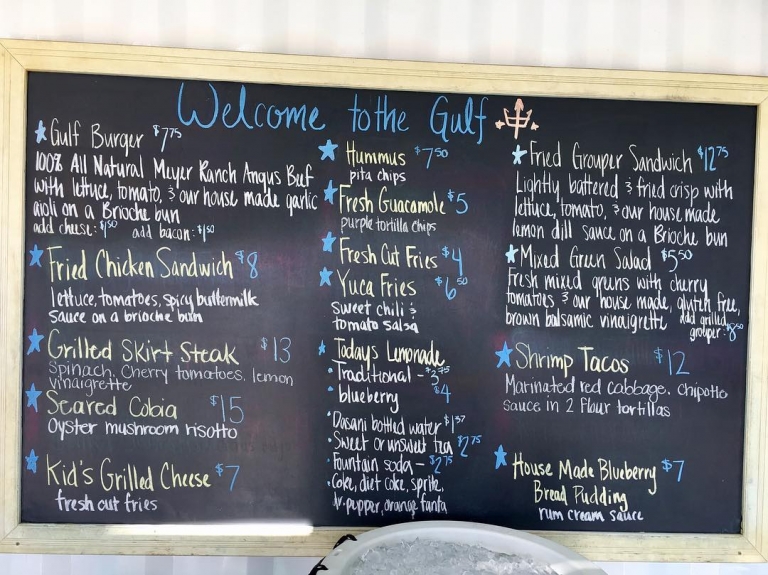 Welcome to the Gulf
Gulf Burger $7.75
100% All Natural Meyer Ranch Angus Beef
with lettuce, tomato, & our house made garlic
aioli on a Brioche bun
add cheese: $1.50 add bacon: $1.50
Fried Chicken Sandwich $8
lettuce, tomatoes, spicy buttermilk
sauce on a brioche bun
Grilled Skirt Steak $13
Spinach, Cherry tomatoes, lemon
vinaigrette
Seared Cobia $15
Oyster mushroom risotto
Kid's Grilled Cheese $7
fresh cut fries
Hummus $7.50
pita chips
Fresh Guacamole $5
purple tortilla chips
Fresh Cut Fries $4
Yuca Fries $6.50
Sweet chili &
tomato salsa
Todays Lemonade
• Traditional - $3.75
• blueberry $4
• Dasani bottled water $1.37
• Sweet or unsweet tea $2.75
• Fountain soda - $2.75
• Coke, diet coke, sprite,
dr. pepper, orange fanta
Fried Grouper Sandwich $12.75
Lightly battered & fried crisp with
lettuce, tomato, & our house made
lemon dill sauce on a Brioche bun
Mixed Green Salad $5.50
Fresh mixed greens with cherry
tomatoes & our house made, gluten free,
brown balsamic vinaigrette add grilled
grouper: $8.50
Shrimp Tacos $12
Marinated red cabbage, chipotle
sauce in 2 flour tortillas
House Made Blueberry $7
Bread Pudding
rum cream sauce